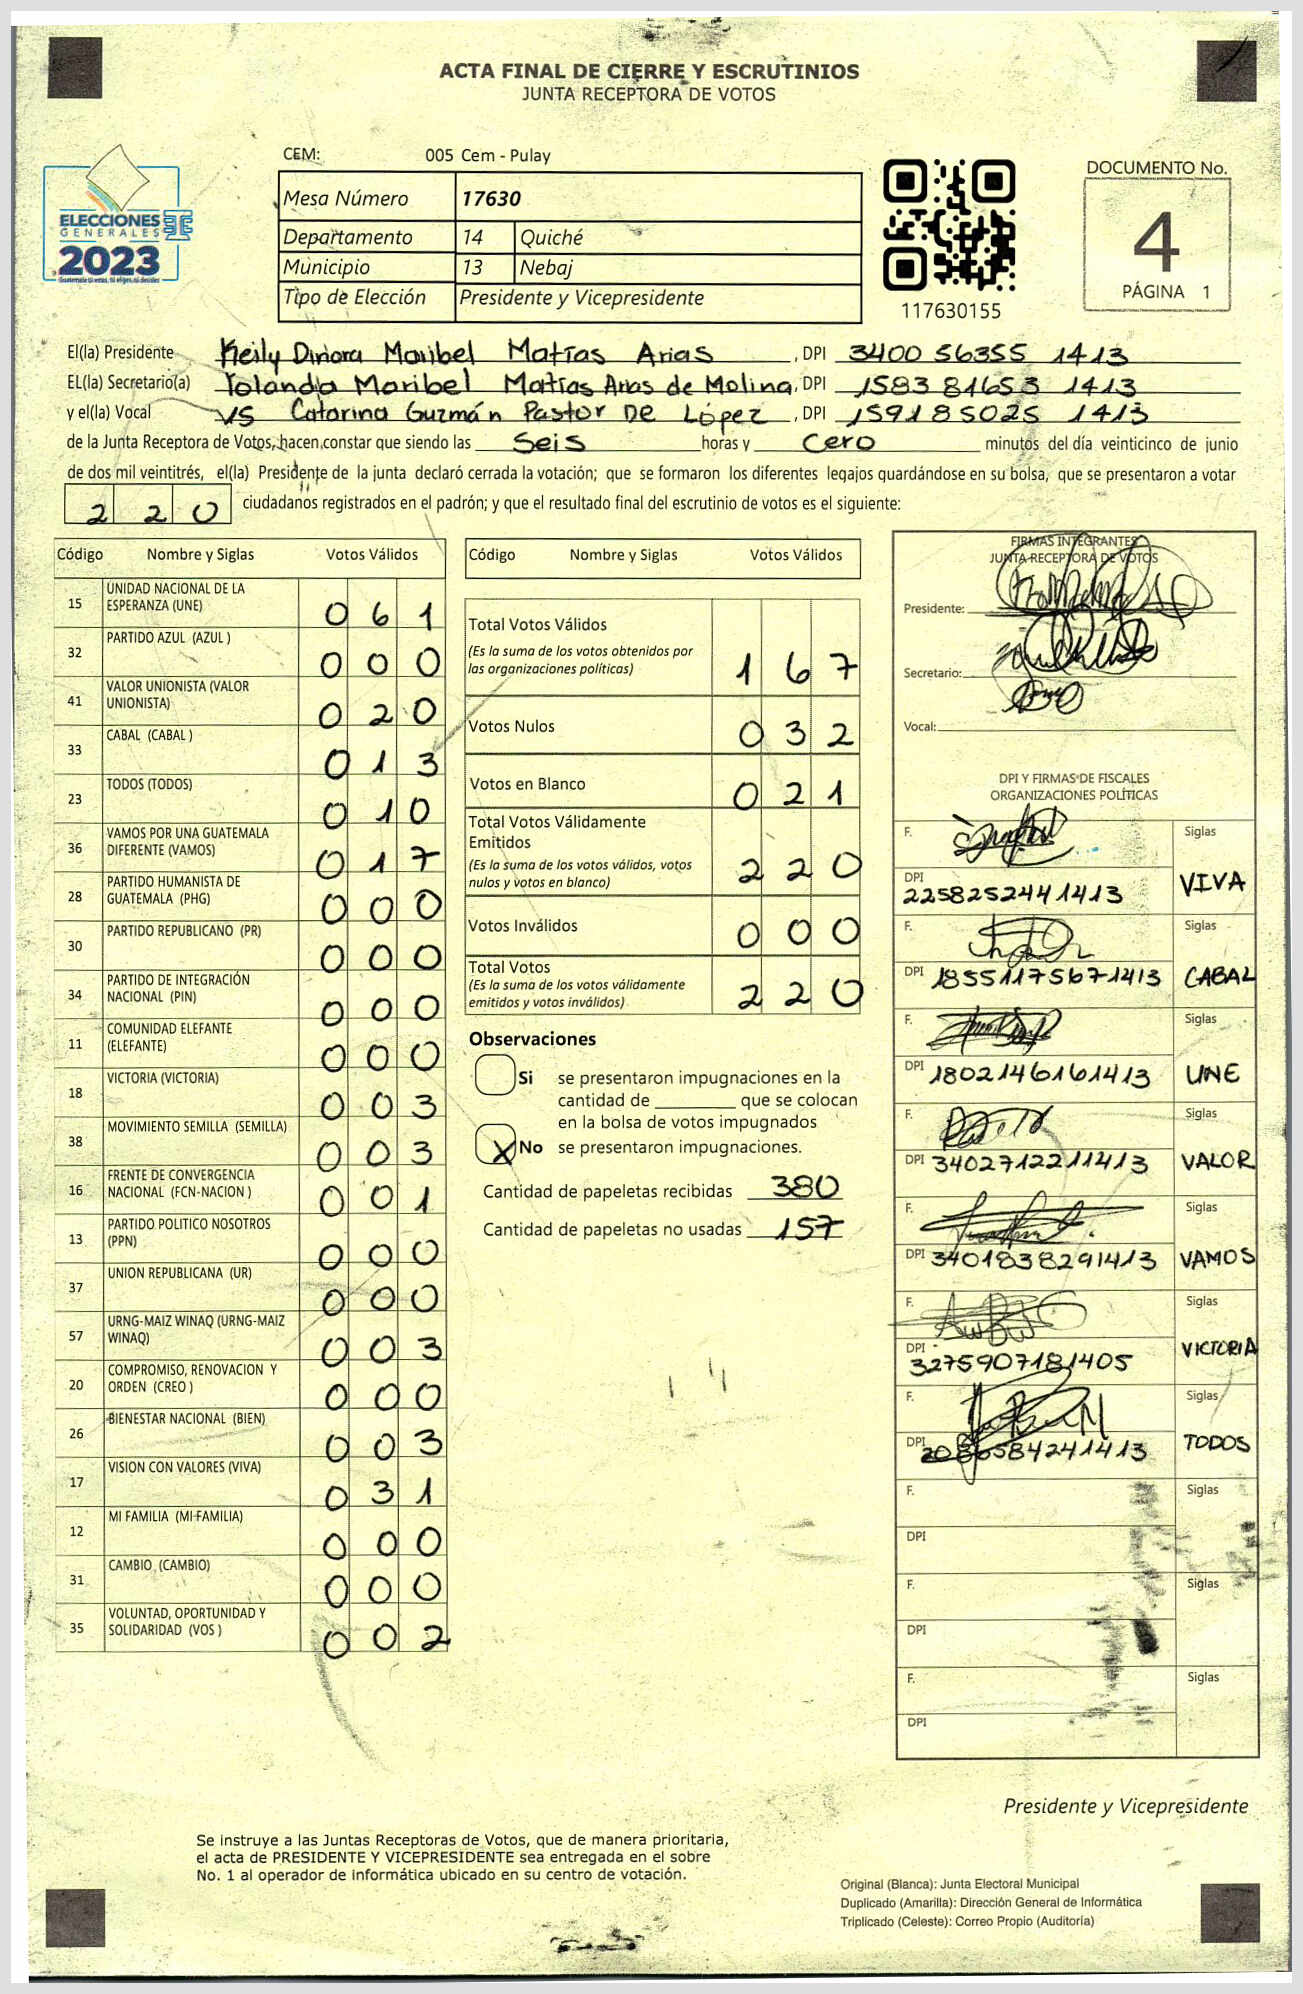 ACTA FINAL DE CIERRE Y ESCRUTINIOS
JUNTA RECEPTORA DE VOTOS
CEM: 005 Cem - Pulay
Mesa Número 17630
Departamento 14 Quiché
Municipio 13 Nebaj
Tipo de Elección Presidente y Vicepresidente
ELECCIONES
GENERALES
2023
117630155
DOCUMENTO No.
4
PÁGINA 1
El(la) Presidente Keily Dinora Maribel Matías Arias, DPI 3400 56355 1413
EL(la) Secretario(a) Yolanda Maribel Matías Arias de Molina, DPI 1583 81653 1413
y el(la) Vocal VS Catarina Guzmán Pastor De López, DPI 159185025 1413
de la Junta Receptora de Votos, hacen constar que siendo las Seis horas y Cero minutos del día veinticinco de junio
de dos mil veintitrés, el(la) Presidente de la junta declaró cerrada la votación; que se formaron los diferentes legajos guardándose en su bolsa, que se presentaron a votar
220 ciudadanos registrados en el padrón; y que el resultado final del escrutinio de votos es el siguiente:
Código Nombre y Siglas Votos Válidos
15 UNIDAD NACIONAL DE LA ESPERANZA (UNE) 061
32 PARTIDO AZUL (AZUL ) 000
41 VALOR UNIONISTA (VALOR UNIONISTA) 020
33 CABAL (CABAL ) 013
23 TODOS (TODOS) 010
36 VAMOS POR UNA GUATEMALA DIFERENTE (VAMOS) 017
28 PARTIDO HUMANISTA DE GUATEMALA (PHG) 000
30 PARTIDO REPUBLICANO (PR) 000
34 PARTIDO DE INTEGRACIÓN NACIONAL (PIN) 000
11 COMUNIDAD ELEFANTE (ELEFANTE) 000
18 VICTORIA (VICTORIA) 003
38 MOVIMIENTO SEMILLA (SEMILLA) 003
16 FRENTE DE CONVERGENCIA NACIONAL (FCN-NACION ) 001
13 PARTIDO POLITICO NOSOTROS (PPN) 000
37 UNION REPUBLICANA (UR) 000
57 URNG-MAIZ WINAQ (URNG-MAIZ WINAQ) 003
20 COMPROMISO, RENOVACION Y ORDEN (CREO ) 000
26 BIENESTAR NACIONAL (BIEN) 003
17 VISION CON VALORES (VIVA) 031
12 MI FAMILIA (MI FAMILIA) 000
31 CAMBIO (CAMBIO) 000
35 VOLUNTAD, OPORTUNIDAD Y SOLIDARIDAD (VOS ) 002
Código Nombre y Siglas Votos Válidos
Total Votos Válidos 167
(Es la suma de los votos obtenidos por
las organizaciones políticas)
Votos Nulos 032
Votos en Blanco 021
Total Votos Válidamente
Emitidos 220
(Es la suma de los votos válidos, votos
nulos y votos en blanco)
Votos Inválidos 000
Total Votos 220
(Es la suma de los votos válidamente
emitidos y votos inválidos)
Observaciones
Si se presentaron impugnaciones en la
cantidad de ________ que se colocan
en la bolsa de votos impugnados
X No se presentaron impugnaciones.
Cantidad de papeletas recibidas 380
Cantidad de papeletas no usadas 157
FIRMAS INTEGRANTES
JUNTA RECEPTORA DE VOTOS
Presidente:
Secretario:
Vocal:
DPI Y FIRMAS DE FISCALES
ORGANIZACIONES POLÍTICAS
F. Siglas
DPI 2258252441413 VIVA
F. Siglas
DPI 18551175671413 CABAL
F. Siglas
DPI 1802146161413 UNE
F. Siglas
DPI 3402712211413 VALOR
F. Siglas
DPI 3401838291413 VAMOS
F. Siglas
DPI 3275907181405 VICTORIA
F. Siglas
DPI TODOS
F. Siglas
DPI
F. Siglas
DPI
F. Siglas
DPI
Presidente y Vicepresidente
Se instruye a las Juntas Receptoras de Votos, que de manera prioritaria,
el acta de PRESIDENTE Y VICEPRESIDENTE sea entregada en el sobre
No. 1 al operador de informática ubicado en su centro de votación.
Original (Blanca): Junta Electoral Municipal
Duplicado (Amarilla): Dirección General de Informática
Triplicado (Celeste): Correo Propio (Auditoría)